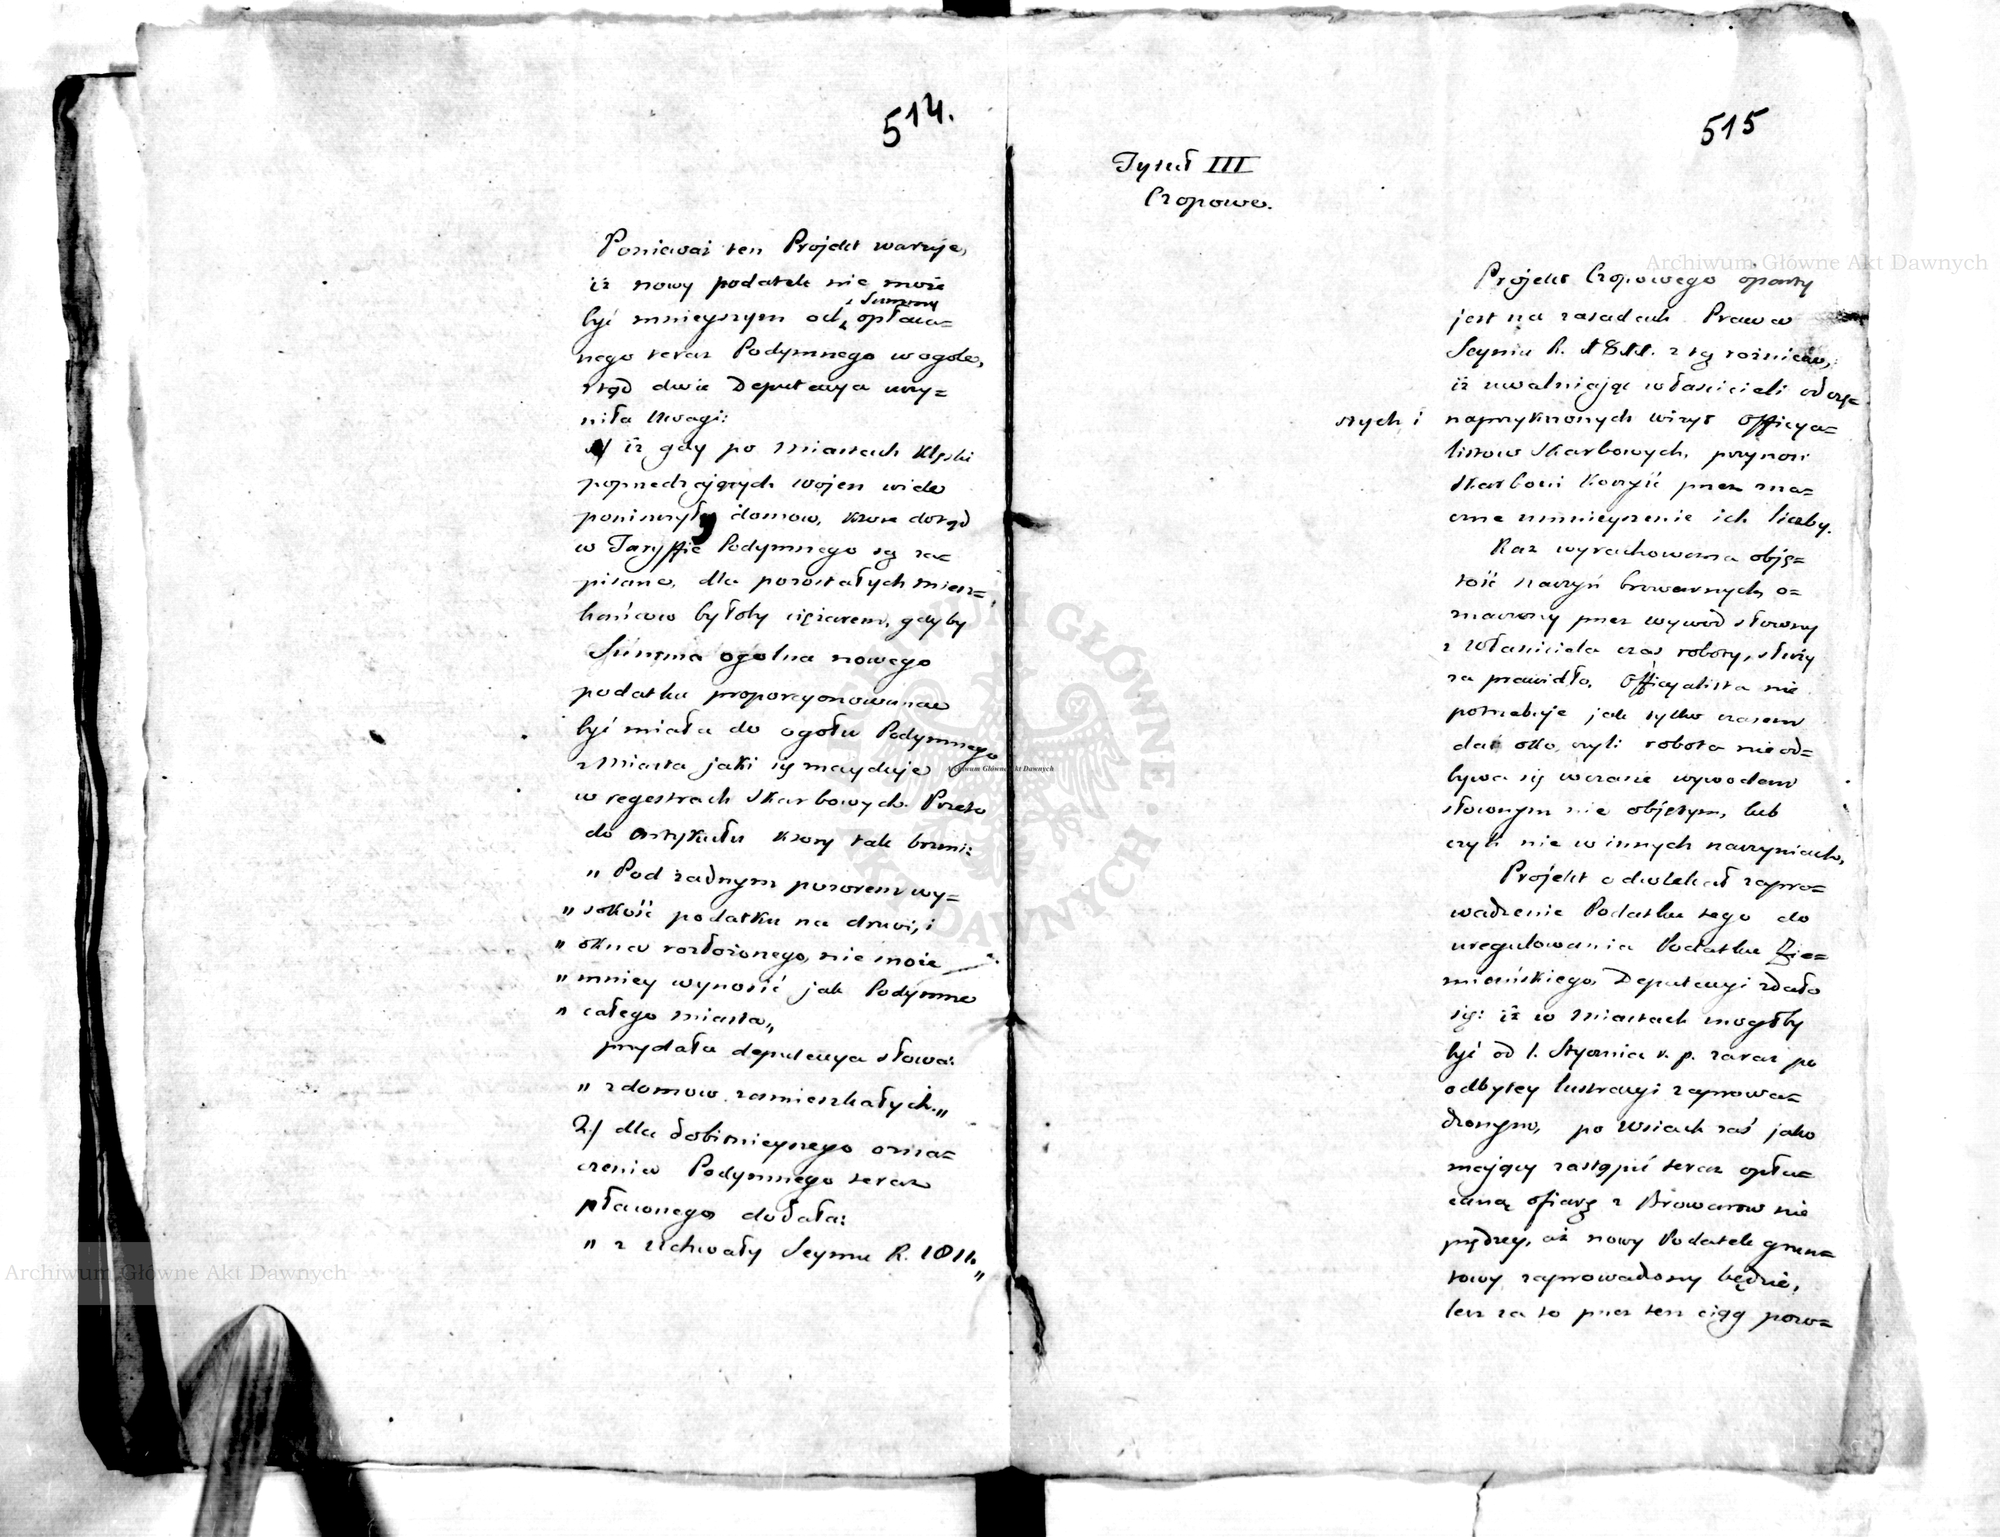 514.
Ponieważ ten Projekt waruje,
iż nowy podatek nie może
być mnieyszym od Summy opłaca=
nego teraz Podymnego w ogole,
ztąd dwie Deputacya uczy=
niła Uwagi:
1) iż gdy po Miastach klęski
poprzedzających wojen wiele
poniszczyły domow, ktore dotąd
w Taryffie Podymnego są za=
pisane, dla pozostałych miesz=
kańcow byłoby ciężarem, gdyby
Summa ogolna nowego
podatku proporcyonowana
być miała do ogołu Podymnego
z Miasta jaki się znayduje
w regestrach Skarbowych. Przeto
do Artykułu ktory tak brzmi:
„ Pod żadnym pozorem wy=
„ sokość podatku na drzwi, i
„ okna rozłożonego, nie może
„ mniey wynosić jak Podymne
„ całego miasta„
przydała deputacya słowa:
„ z domow zamieszkałych.„
2.) dla dobitnieyszego ozna=
czenia Podymnego teraz
płaconego dodała:
„ z Uchwały Seymu R. 1811.„
515
Tytuł III
Czopowe.
Projekt Czopowego oparty
jest na zasadach Prawa
Seymu R. 1811. z tą rożnicą,
iż uwalniając właścicieli od czę=
stych i naprzykrzonych wizyt Officya=
listow Skarbowych, przynosi
Skarbowi korzyść przez zna=
czne zmnieyszenie ich liczby.
Raz wyrachowana obję=
tość naczyń browarnych, o=
znaczony przez wywod słowny
z Właściciela czas roboty, służy
za prawidło. Officyalista nie
potrzebuje jak tylko czasem
dać oko, czyli robota nie od=
bywa się w czasie wywodem
słownym nie objętym, lub
czyli nie w innych naczyniach.
Projekt odwlekał zapro=
wadzenie Podatku tego do
uregulowania Podatku Zie=
miańskiego. Deputacyi zdało
się: iż w Miastach mogłby
być od 1. Stycznia r. p. zaraz po
odbytey lustracyi zaprowa=
dzonym, po Wsiach zaś jako
mający zastąpić teraz opła=
caną ofiarę z Browarow nie
prędzey, aż nowy Podatek grun=
towy zaprowadzony będzie,
lecz za to przez ten ciąg pozo=
Archiwum Główne Akt Dawnych
Archiwum Główne Akt Dawnych
Archiwum Główne Akt Dawnych
ARCHIWUM GŁÓWNE AKT DAWNYCH